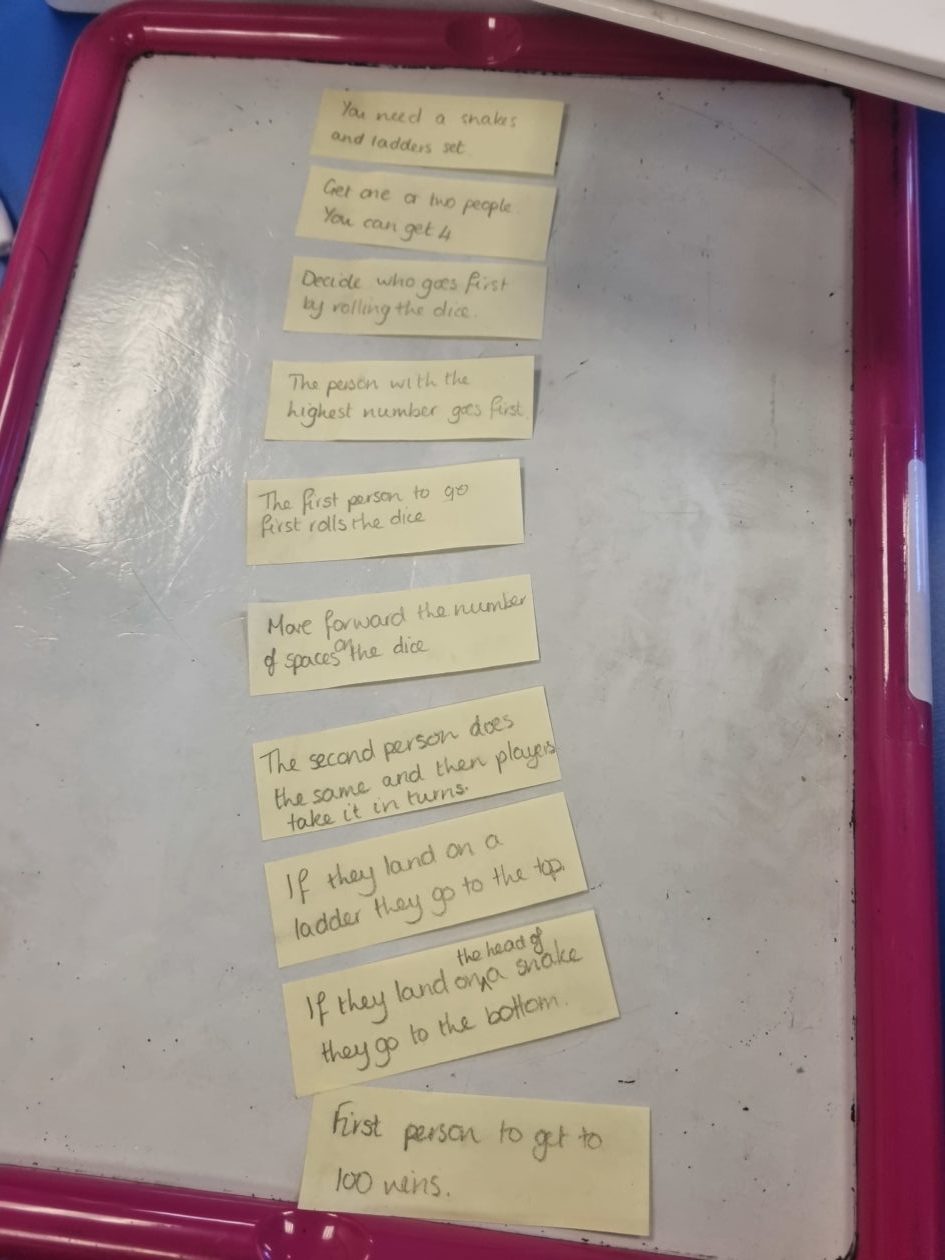 You need a snakes
and ladders set
Get one or two people.
You can get 4
Decide who goes first
by rolling the dice.
The person with the
highest number goes first.
The first person to go
first rolls the dice
Move forward the number
of spaces on the dice
The second person does
the same and then players
take it in turns.
If they land on a
ladder they go to the top.
If they land on the head of a snake
they go to the bottom.
First person to get to
100 wins.